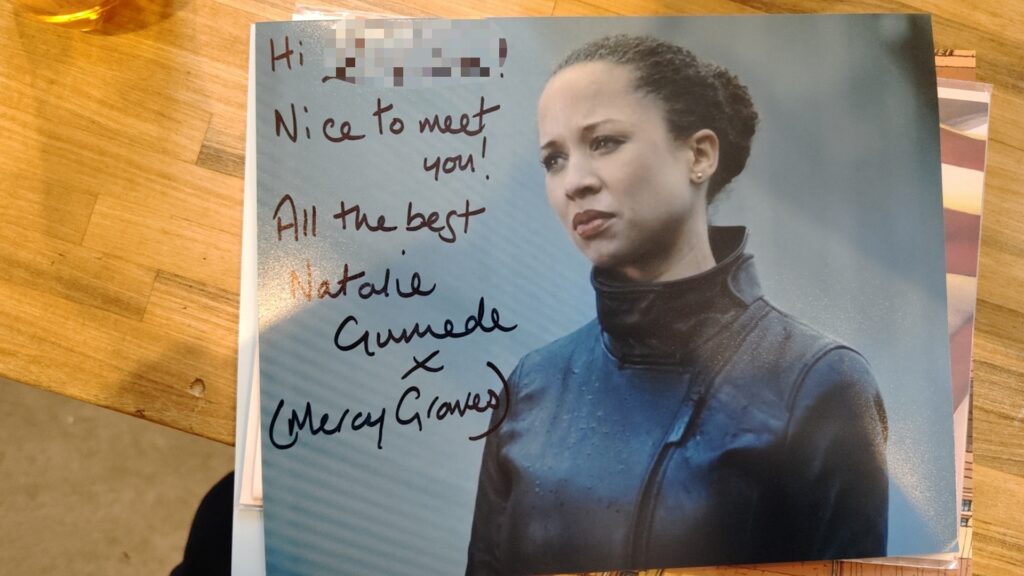 Hi !
Nice to meet
you!
All the best
Natalie
Gumede
x
(Mercy Graves)